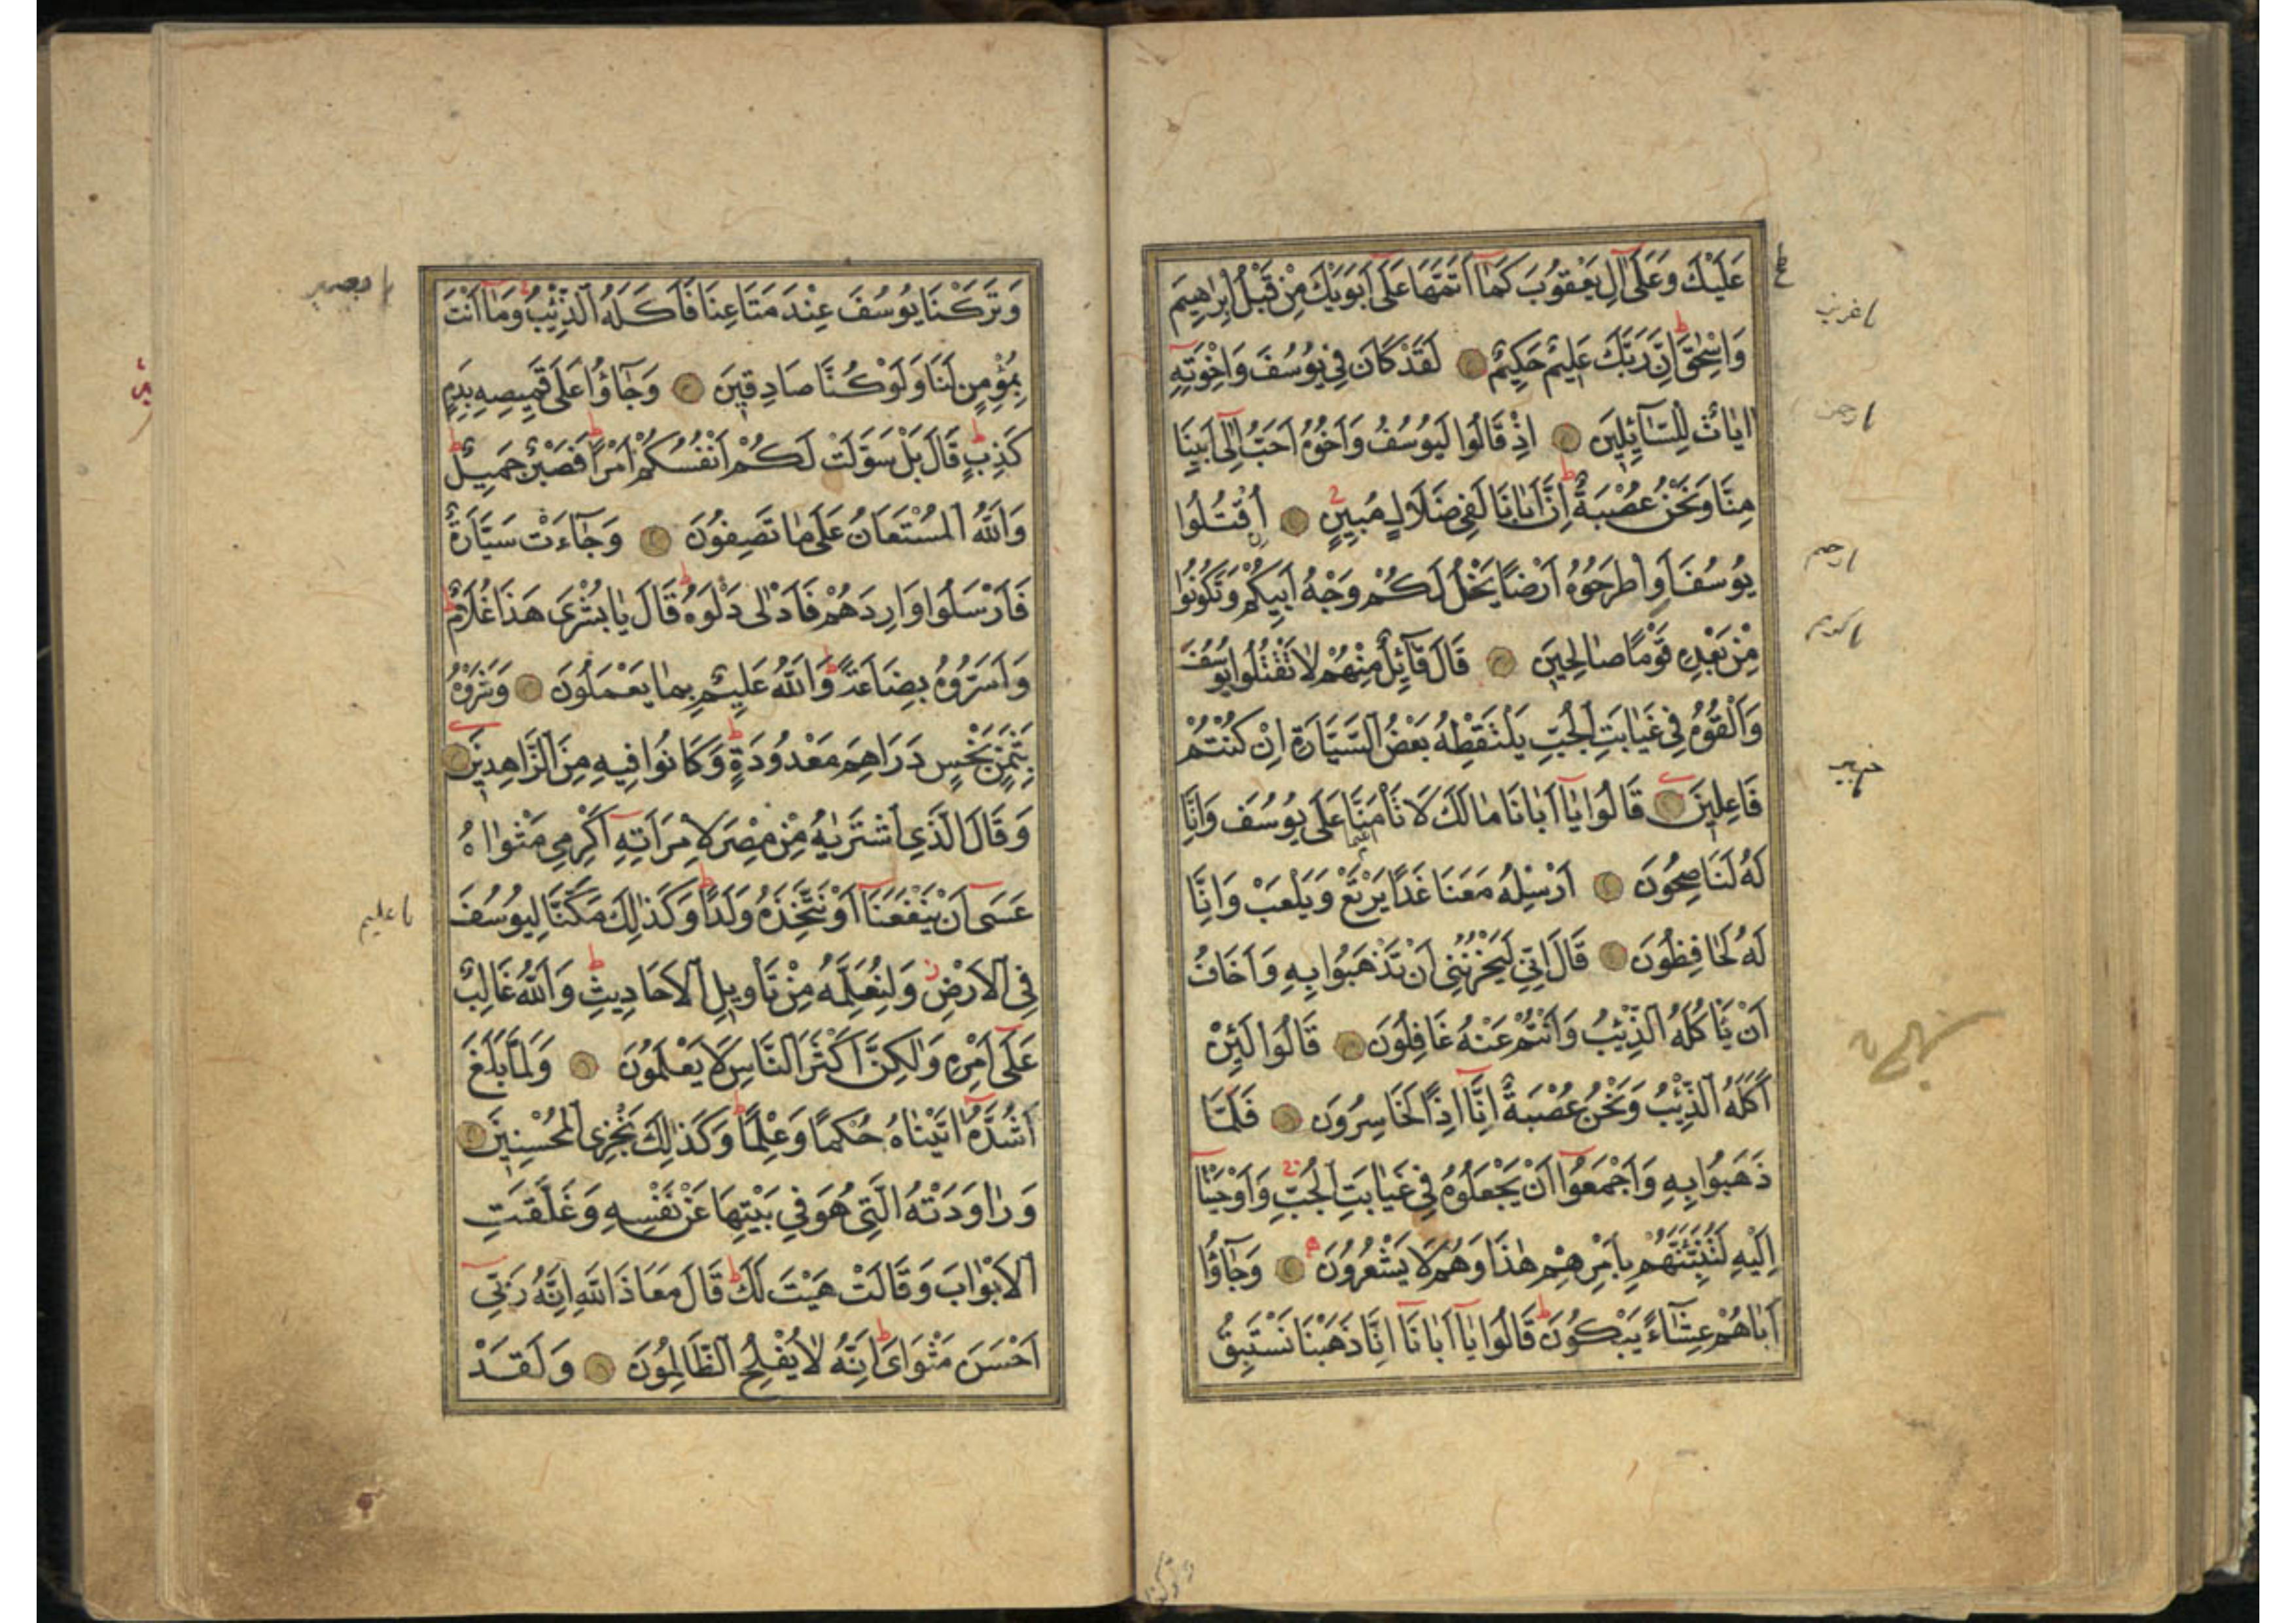 عَلَيْكَ وَعَلَىٰ اٰلِ يَعْقُوبَ كَمَا اَتَمَّهَا عَلَىٰ اَبَوَيْكَ مِنْ قَبْلُ اِبْرٰهِيمَ
وَاِسْحٰقَ اِنَّ رَبَّكَ عَلِيمٌ حَكِيمٌ لَقَدْ كَانَ فِي يُوسُفَ وَاِخْوَتِهِ
اٰيَاتٌ لِلسَّآئِلِينَ اِذْ قَالُوا لَيُوسُفُ وَاَخُوهُ اَحَبُّ اِلٰى اَبِينَا
مِنَّا وَنَحْنُ عُصْبَةٌ اِنَّ اَبَانَا لَفِي ضَلَالٍ مُبِينٍ اُقْتُلُوا
يُوسُفَ اَوِ اطْرَحُوهُ اَرْضًا يَخْلُ لَكُمْ وَجْهُ اَبِيكُمْ وَتَكُونُوا
مِنْ بَعْدِهِ قَوْمًا صَالِحِينَ قَالَ قَآئِلٌ مِنْهُمْ لَا تَقْتُلُوا يُوسُفَ
وَاَلْقُوهُ فِي غَيَابَتِ الْجُبِّ يَلْتَقِطْهُ بَعْضُ السَّيَّارَةِ اِنْ كُنْتُمْ
فَاعِلِينَ قَالُوا يَا اَبَانَا مَا لَكَ لَا تَأْمَنَّا عَلَىٰ يُوسُفَ وَاِنَّا
لَهُ لَنَاصِحُونَ اَرْسِلْهُ مَعَنَا غَدًا يَرْتَعْ وَيَلْعَبْ وَاِنَّا
لَهُ لَحَافِظُونَ قَالَ اِنِّي لَيَحْزُنُنِي اَنْ تَذْهَبُوا بِهِ وَاَخَافُ
اَنْ يَأْكُلَهُ الذِّئْبُ وَاَنْتُمْ عَنْهُ غَافِلُونَ قَالُوا لَئِنْ
اَكَلَهُ الذِّئْبُ وَنَحْنُ عُصْبَةٌ اِنَّا اِذًا لَخَاسِرُونَ فَلَمَّا
ذَهَبُوا بِهِ وَاَجْمَعُوا اَنْ يَجْعَلُوهُ فِي غَيَابَتِ الْجُبِّ وَاَوْحَيْنَا
اِلَيْهِ لَتُنَبِّئَنَّهُمْ بِاَمْرِهِمْ هٰذَا وَهُمْ لَا يَشْعُرُونَ وَجَآؤُا
اَبَاهُمْ عِشَآءً يَبْكُونَ قَالُوا يَا اَبَانَا اِنَّا ذَهَبْنَا نَسْتَبِقُ
وَتَرَكْنَا يُوسُفَ عِنْدَ مَتَاعِنَا فَاَكَلَهُ الذِّئْبُ وَمَا اَنْتَ
بِمُؤْمِنٍ لَنَا وَلَوْ كُنَّا صَادِقِينَ وَجَآؤُا عَلَىٰ قَمِيصِهِ بِدَمٍ
كَذِبٍ قَالَ بَلْ سَوَّلَتْ لَكُمْ اَنْفُسُكُمْ اَمْرًا فَصَبْرٌ جَمِيلٌ
وَاللّٰهُ الْمُسْتَعَانُ عَلَىٰ مَا تَصِفُونَ وَجَآءَتْ سَيَّارَةٌ
فَاَرْسَلُوا وَارِدَهُمْ فَاَدْلٰى دَلْوَهُ قَالَ يَا بُشْرٰى هَذَا غُلَامٌ
وَاَسَرُّوهُ بِضَاعَةً وَاللّٰهُ عَلِيمٌ بِمَا يَعْمَلُونَ وَشَرَوْهُ
بِثَمَنٍ بَخْسٍ دَرَاهِمَ مَعْدُودَةٍ وَكَانُوا فِيهِ مِنَ الزَّاهِدِينَ
وَقَالَ الَّذِي اشْتَرٰيهُ مِنْ مِصْرَ لِامْرَاَتِهِ اَكْرِمِي مَثْوَاهُ
عَسَىٰ اَنْ يَنْفَعَنَا اَوْ نَتَّخِذَهُ وَلَدًا وَكَذٰلِكَ مَكَّنَّا لِيُوسُفَ
فِي الْاَرْضِ وَلِنُعَلِّمَهُ مِنْ تَأْوِيلِ الْاَحَادِيثِ وَاللّٰهُ غَالِبٌ
عَلَىٰ اَمْرِهِ وَلٰكِنَّ اَكْثَرَ النَّاسِ لَا يَعْلَمُونَ وَلَمَّا بَلَغَ
اَشُدَّهُ اٰتَيْنَاهُ حُكْمًا وَعِلْمًا وَكَذٰلِكَ نَجْزِي الْمُحْسِنِينَ
وَرَاوَدَتْهُ الَّتِي هُوَ فِي بَيْتِهَا عَنْ نَفْسِهِ وَغَلَّقَتِ
الْاَبْوَابَ وَقَالَتْ هَيْتَ لَكَ قَالَ مَعَاذَ اللّٰهِ اِنَّهُ رَبِّي
اَحْسَنَ مَثْوَايَ اِنَّهُ لَا يُفْلِحُ الظَّالِمُونَ وَلَقَدْ
يا عليم